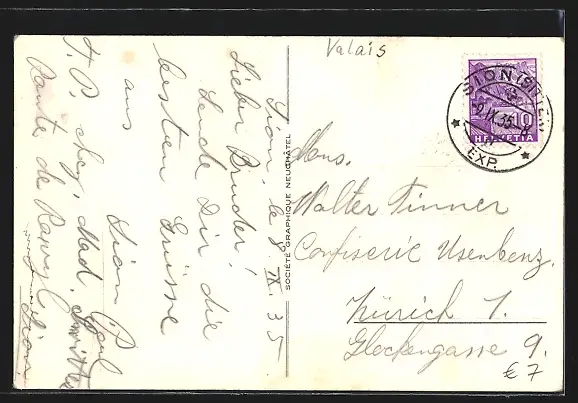 Valais
Sion, le 8. IX. 35
Lieber Bruder!
Sende Dir die
besten Grüsse
aus Sion Paul
T. P. chez, Mad.
Route de Rawyl, Sion
SOCIÉTÉ GRAPHIQUE NEUCHÂTEL
SION (SITTEN)
9. IX. 35
EXP.
10
HELVETIA
Mons.
Walter Tinner
Confiserie Usenbenz.
Zürich 1.
Glockengasse 9.
€ 7